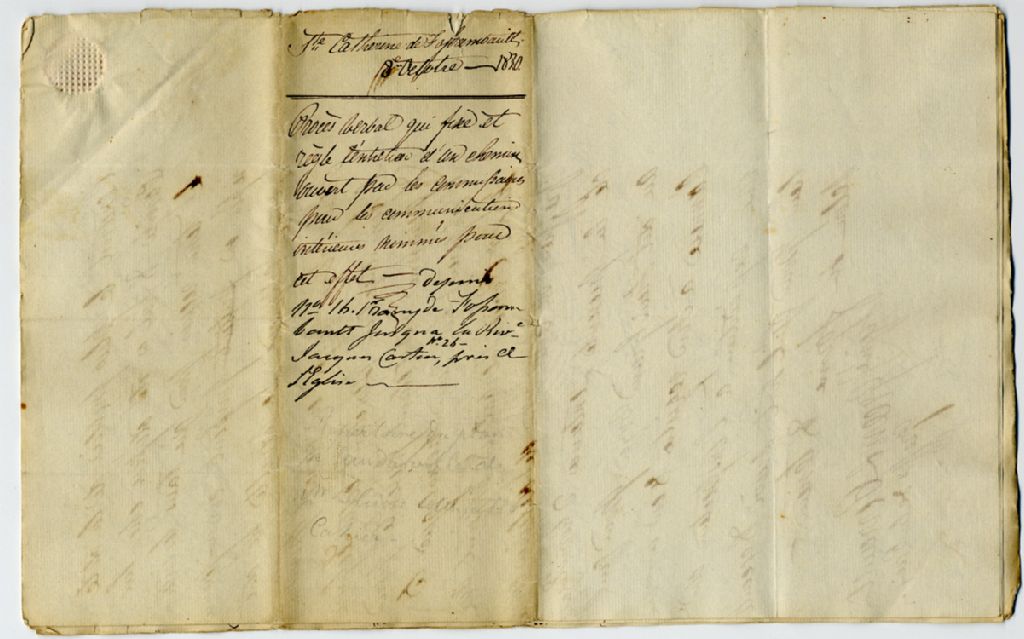 Ste Catherine de Fossambault,
8 Octobre — 1830
Procès Verbal qui fixe et
règle l'entretien d'un chemin
ouvert par les commissaires
pour les communications
intérieures nommés pour
cet effet — depuis
No. 16. 1er Rang de Fossam
bault Jusqua la Rivre
No. 26 —
Jacques Cartier, près de
l'Eglise —